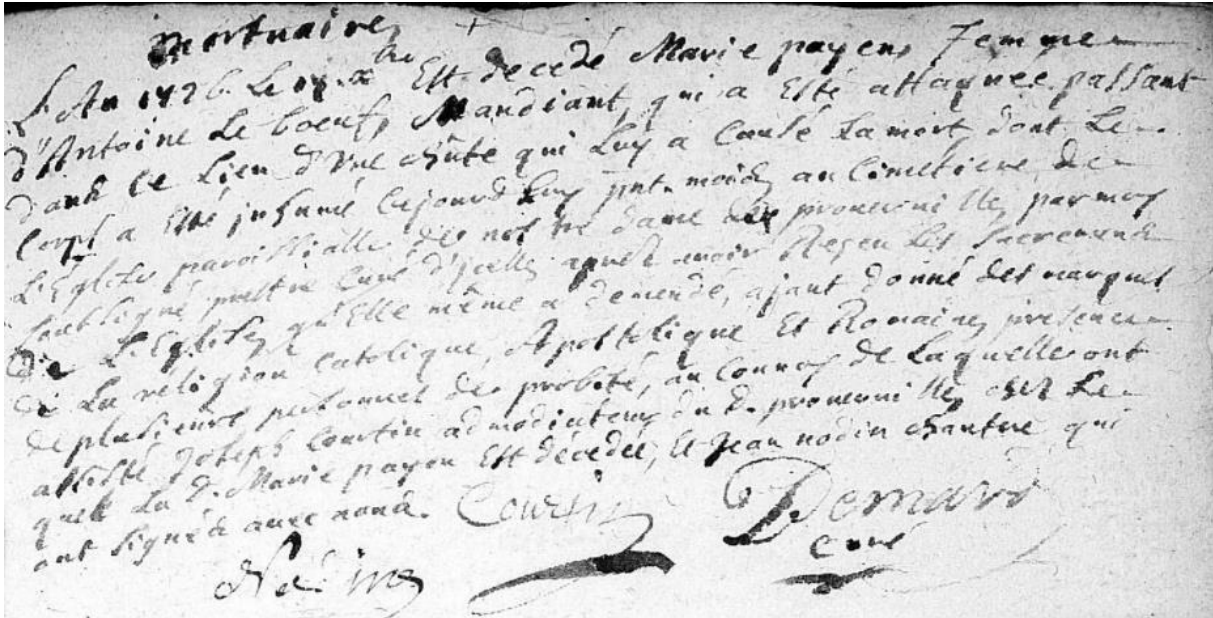 mortuaire
L'An 1726. Le 19. xbre Est decedé Marie payen, Femme
d'Antoine Le boeuf, Mandiant, qui a Esté attaquée passant
dans ce Lieu d'vne chûte qui Luy a Causé La mort, dont Le
Corps a Esté jnhumé Cejourd'huy pnt. mois, au Cimetiere de
L'Eglise paroissialle de nostre dame de prouerville, par moy
soubsigné prestre Curé d'jcelle, aprés avoir Reçeu Les sacremens
de L'Eglise, qu'Elle même a demendé, ajant donné des marques
de La religion Catolique, Apostolique Et Romaine, presence
de plusieurs personnes de probité, au Connoy de Laquelle ont
assisté Joseph Courtin admodiateur du d. prouerville, chez Le
quel La d. Marie payen Est décedée, Et Jean nodin chantre qui
ont signéz avec nous.
Courtin
Demard
Curé
Nodin